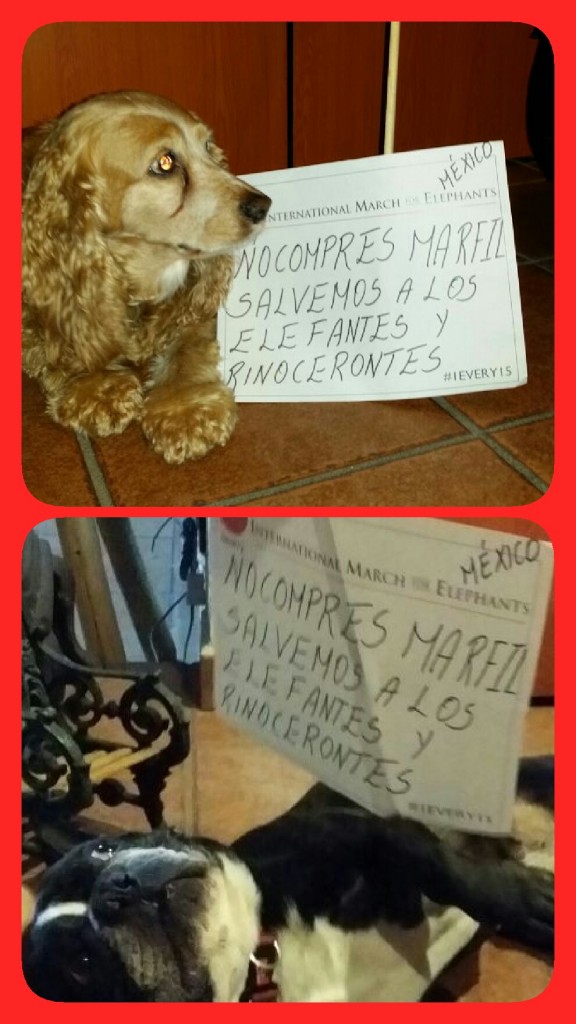 MÉXICO
INTERNATIONAL MARCH FOR ELEPHANTS
NO COMPRES MARFIL
SALVEMOS A LOS
ELEFANTES Y
RINOCERONTES
#1EVERY15
MÉXICO
INTERNATIONAL MARCH FOR ELEPHANTS
NO COMPRES MARFIL
SALVEMOS A LOS
ELEFANTES Y
RINOCERONTES
#1EVERY15